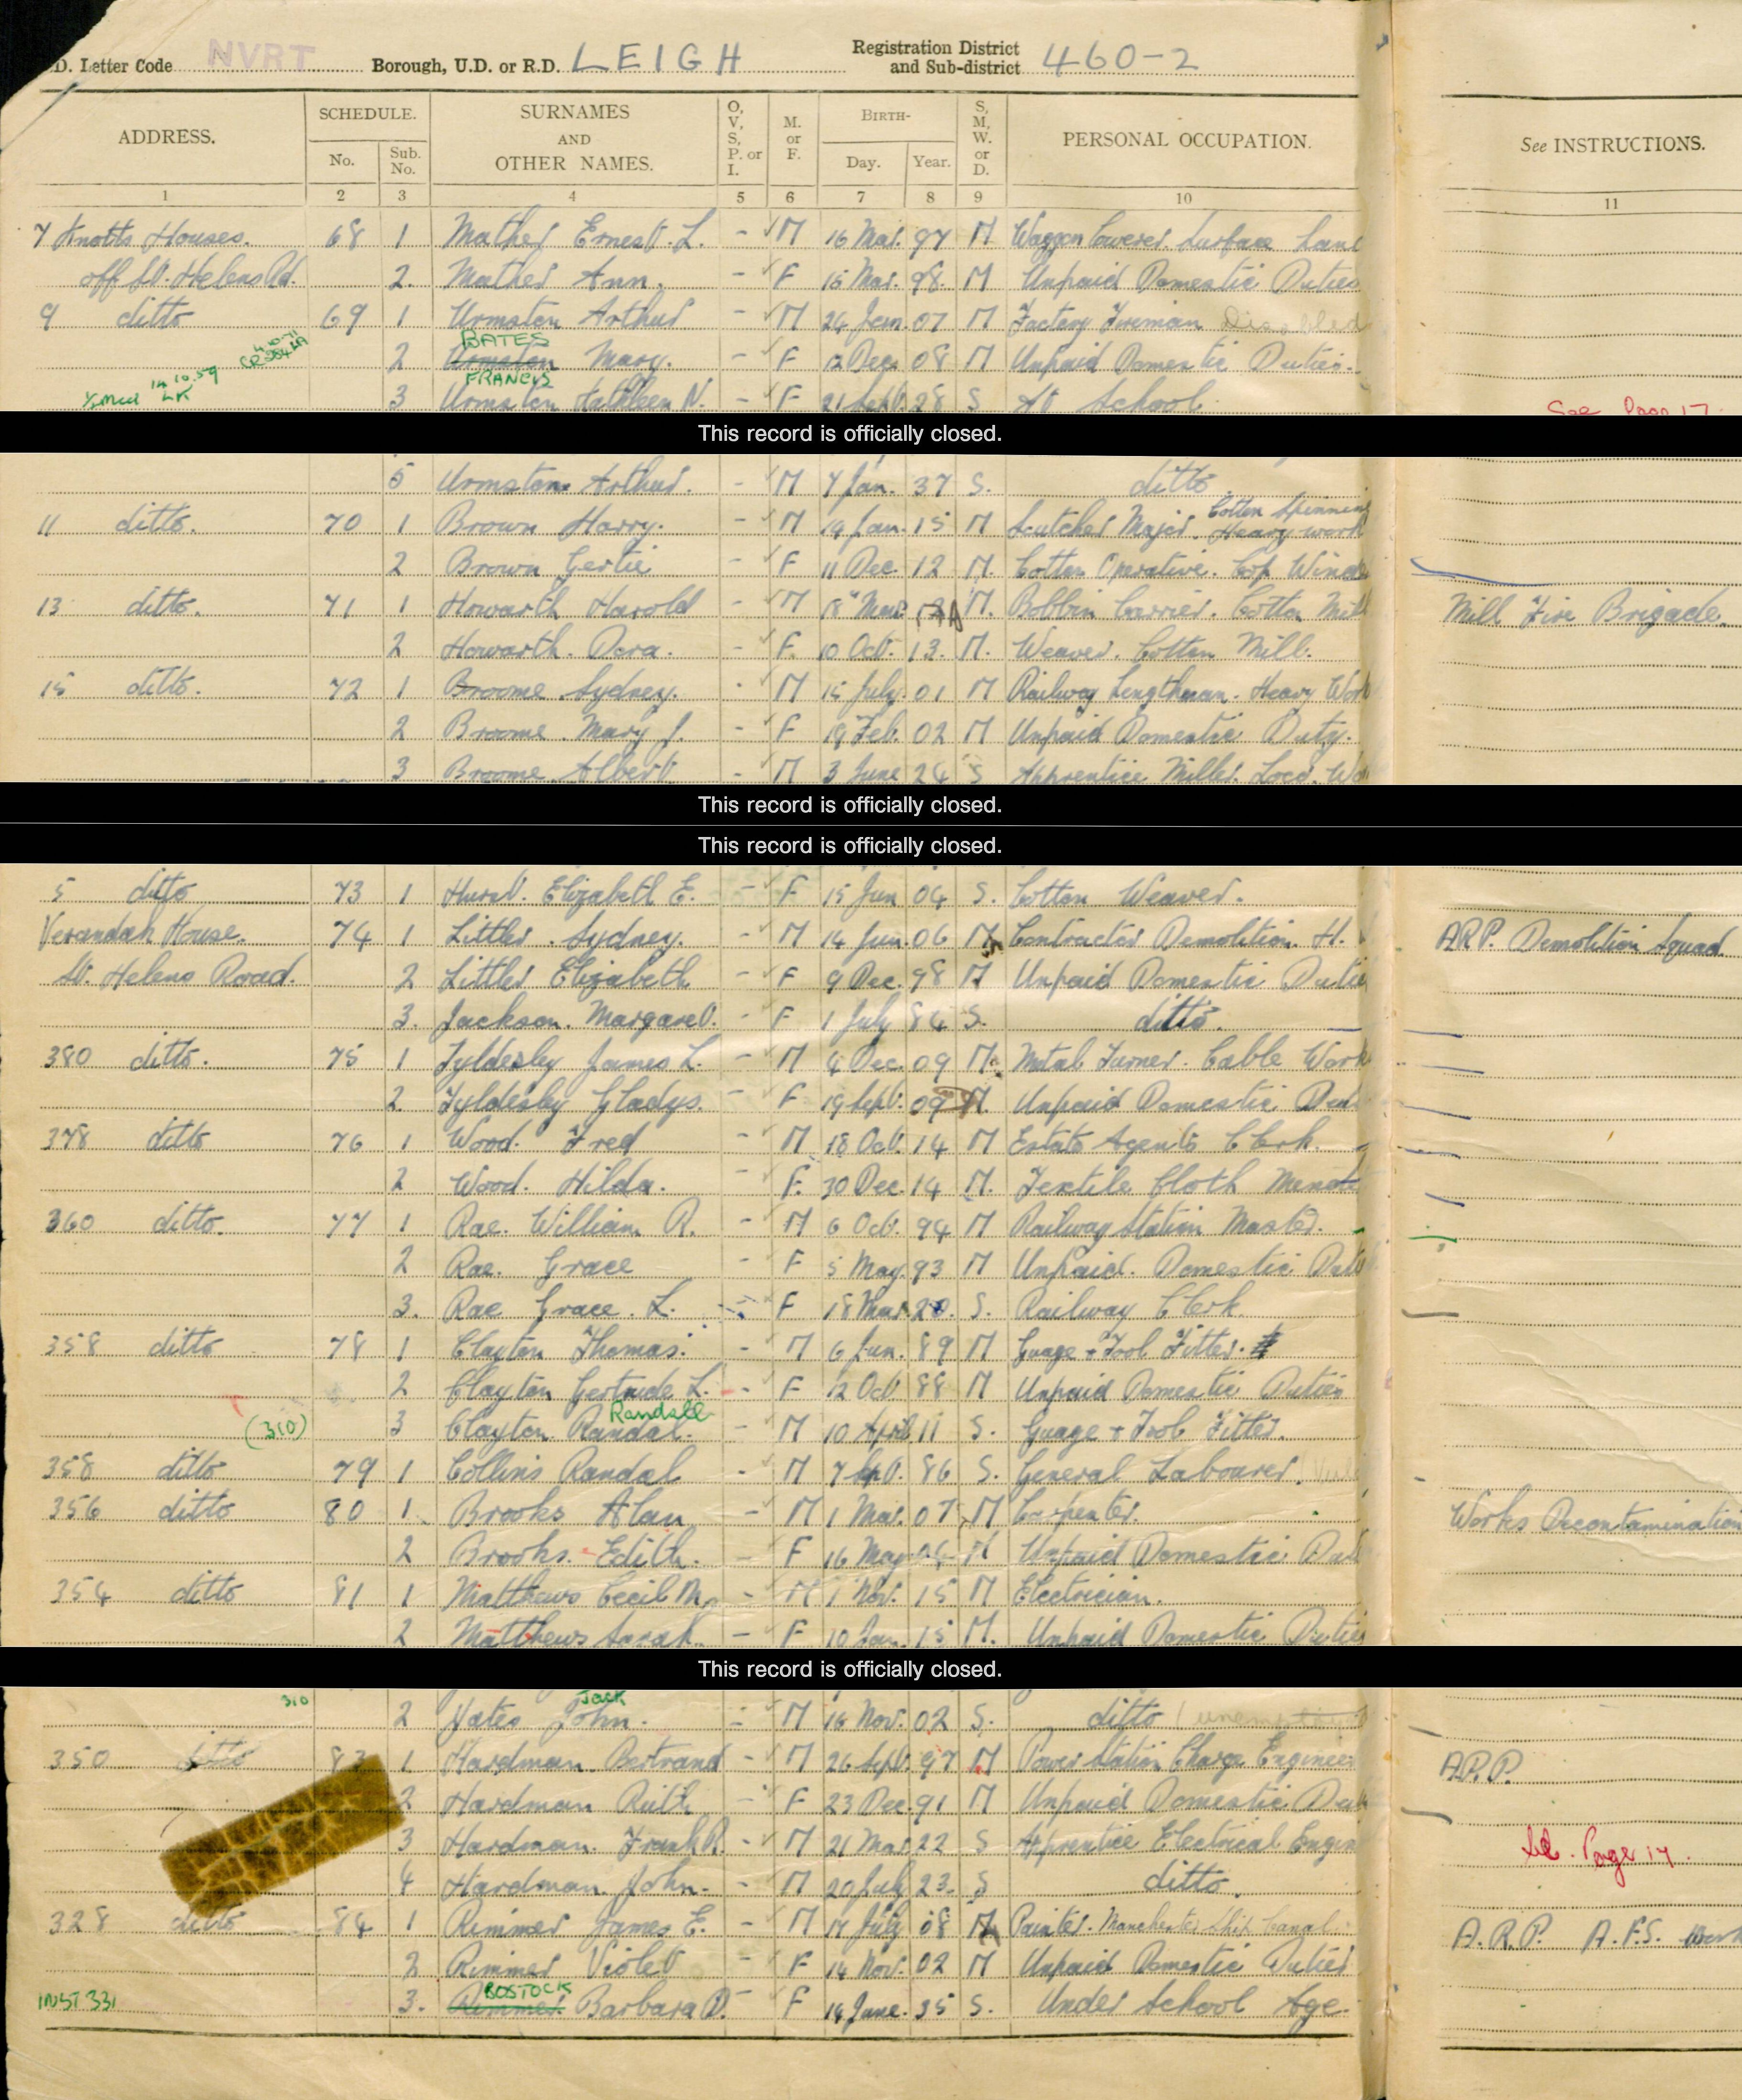 D. Letter Code NVRT Borough, U.D. or R.D. LEIGH Registration District and Sub-district 460-2
ADDRESS. SCHEDULE. No. Sub. No. SURNAMES AND OTHER NAMES. O, V, S, P. or I. M. or F. BIRTH- Day. Year. S, M, W. or D. PERSONAL OCCUPATION. See INSTRUCTIONS.
1 2 3 4 5 6 7 8 9 10 11
7 Knotts Houses. 68 1 Mather Ernest. L. - M 16 Mar. 97 M Waggon Lowerer. Surface
off St. Helens Rd. 2. Mather Ann. - F 15 Mar. 98. M Unpaid Domestic Duties
9 ditto 69 1 Urmston Arthur - M 24 Jan. 07 M Factory Fireman Disabled
BATES
2 Urmston Mary. - F 12 Dec. 08 M Unpaid Domestic Duties.
14.10.59 LK FRANCIS
3 Urmston Kathleen N. - F 21 Sept. 28 S At School
See Page 17
This record is officially closed.
5 Urmston Arthur. - M 7 Jan. 37 S. ditto
11 ditto. 70 1 Brown Harry. - M 19 Jan. 15 M Scutcher Major. Cotton Spinning Heavy work
2 Brown Gertie - F 11 Dec. 12 M. Cotton Operative. Cop
13 ditto. 71 1 Howarth Harold - M 18 Mar. M. Bobbin Carrier. Cotton Mill Mill Fire Brigade.
2 Howarth. Dora. - F. 10 Oct. 13. M. Weaver. Cotton Mill.
15 ditto. 72 1 Broome Sydney. - M 15 July. 01 M Railway Lengthman. Heavy Work
2 Broome. Mary J. - F 19 Feb. 02 M Unpaid Domestic Duty.
3 Broome. Albert - M 3 June 24 S Apprentice Miller. Loco.
This record is officially closed.
This record is officially closed.
5 ditto 73 1 Hurst. Elizabeth E. - F 15 Jun 04 S. Cotton Weaver.
Verandah House. 74 1 Littler. Sydney. - M 14 Jun. 06 M Contractor Demolition. H. ARP. Demolition Squad
St. Helens Road. 2 Littler Elizabeth - F 9 Dec. 98 M Unpaid Domestic Dutie
3. Jackson. Margaret. - F 1 July 84 S. ditto.
380 ditto. 75 1 Tyldesley James L. - M 4 Dec. 09 M. Metal Turner. Cable Work
2 Tyldesley Gladys. - F 19 Sept. 09 M. Unpaid Domestic
378 ditto 76 1 Wood. Fred - M 18 Oct. 14 M Estate Agents Clerk.
2 Wood. Hilda. - F. 30 Dec. 14 M. Textile Cloth
360 ditto. 77 1 Rae. William R. - M 6 Oct. 94 M Railway Station Master.
2 Rae. Grace - F 5 May. 93 M Unpaid. Domestic
3. Rae Grace. L. - F 18 Mar. 20. S. Railway Clerk
358 ditto 78 1 Clayton Thomas. - M 6 Jun. 89 M Guage + Tool Fitter.
2 Clayton Gertrude L. - F 12 Oct 88 M Unpaid Domestic Duties
Randall
(310) 3 Clayton Randal. - M 10 April 11 S. Guage + Tool Fitter.
358 ditto 79 1 Collins Randal - M 7 Sept. 86 S. General Labourer.
356 ditto 80 1 Brooks Alan - M 1 Mar. 07 M Carpenter. Works Decontamination
2 Brooks. Edith. - F 16 May M Unpaid Domestic
354 ditto 81 1 Matthews Cecil M. - M 1 Nov. 15 M Electrician.
2 Matthews Sarah. - F 10 Jan. 15 M. Unpaid Domestic Duties
This record is officially closed.
310 Jack
2 Yates John. - M 16 Nov. 02 S. ditto
350 ditto 83 1 Hardman. Bertrand - M 26 Sept. 97 M Power Station Charge Engineer A.R.P.
2 Hardman Ruth - F 23 Dec. 91 M Unpaid Domestic
3 Hardman. Frank R. - M 21 Mar 22 S Apprentice Electrical Engin See. Page 17.
4 Hardman. John. - M 20 July 23. S ditto.
328 ditto 84 1 Rimmer James E. - M 17 July 08 M Painter. Manchester Ship Canal. A.R.P. A.F.S.
2 Rimmer Violet F 14 Nov. 02 M Unpaid Domestic Duties
BOSTOCK
INST 331 3. Rimmer Barbara D. F 14 June. 35 S. Under School Age.